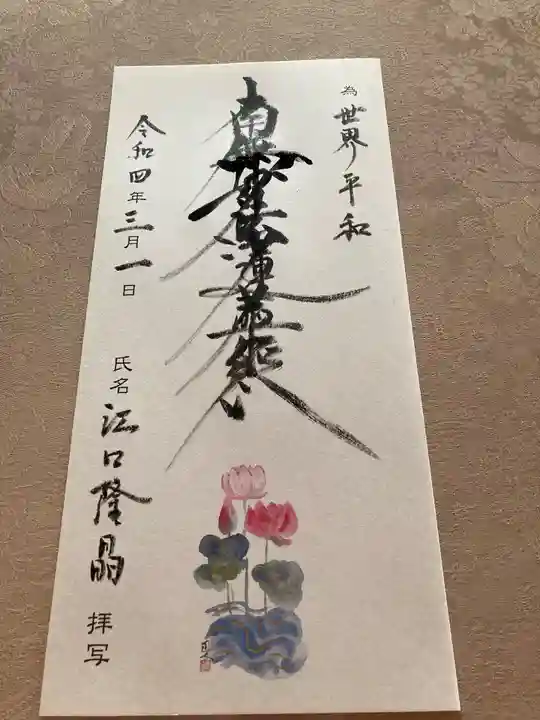 為世界平和
南無妙法蓮華経
令和四年三月一日
氏名江口隆晶拝写